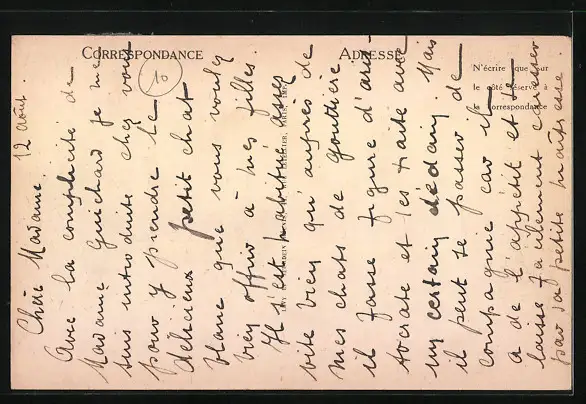 CORRESPONDANCE
ADRESSE
N'écrire que sur
le côté réservé à
la correspondance
12 août.
Chère Madame.
Avec la complicité de
Madame Guichard je m.
suis introduite chez vous
pour y prendre le
délicieux petit chat
blanc que vous voulez
bien offrir à mes filles.
Il s'est habitué assez
vite bien qu'auprès de
mes chats de gouttière
il fasse figure d'aris-
tocrate et les traite avec
un certain dédain Mais
il peut se passer de
compagnie car il
a de l'appétit et se
laisse facilement caresser
par sa petite maîtresse.